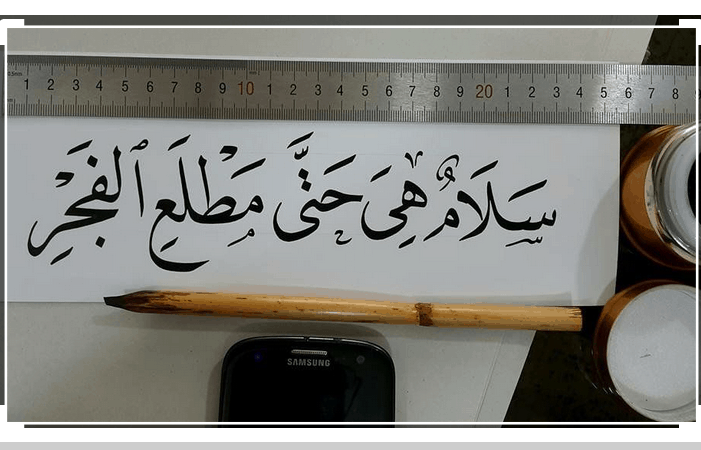 1 2 3 4 5 6 7 8 9 10 1 2 3 4 5 6 7 8 9 20 1 2 3 4 5 6 7 8
سَلَامٌ هِيَ حَتَّى مَطْلَعِ ٱلْفَجْرِ
SAMSUNG